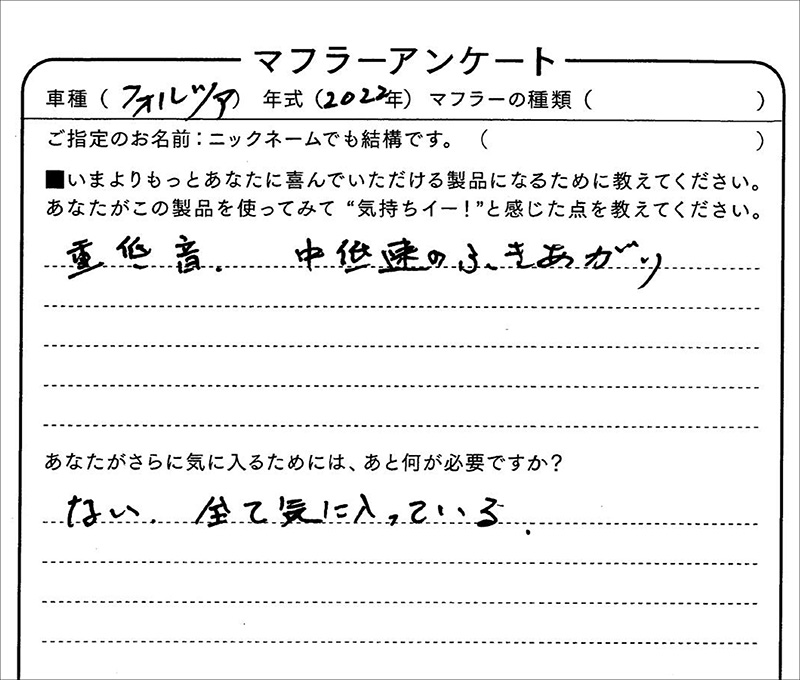 マフラーアンケート
車種（フォルツァ） 年式（2022年） マフラーの種類（　　　）
ご指定のお名前：ニックネームでも結構です。（　　　）
■いまよりもっとあなたに喜んでいただける製品になるために教えてください。
あなたがこの製品を使ってみて“気持ちイー！”と感じた点を教えてください。
重低音. 中低速のふきあがり
あなたがさらに気に入るためには、あと何が必要ですか？
ない. 全て気に入っている.